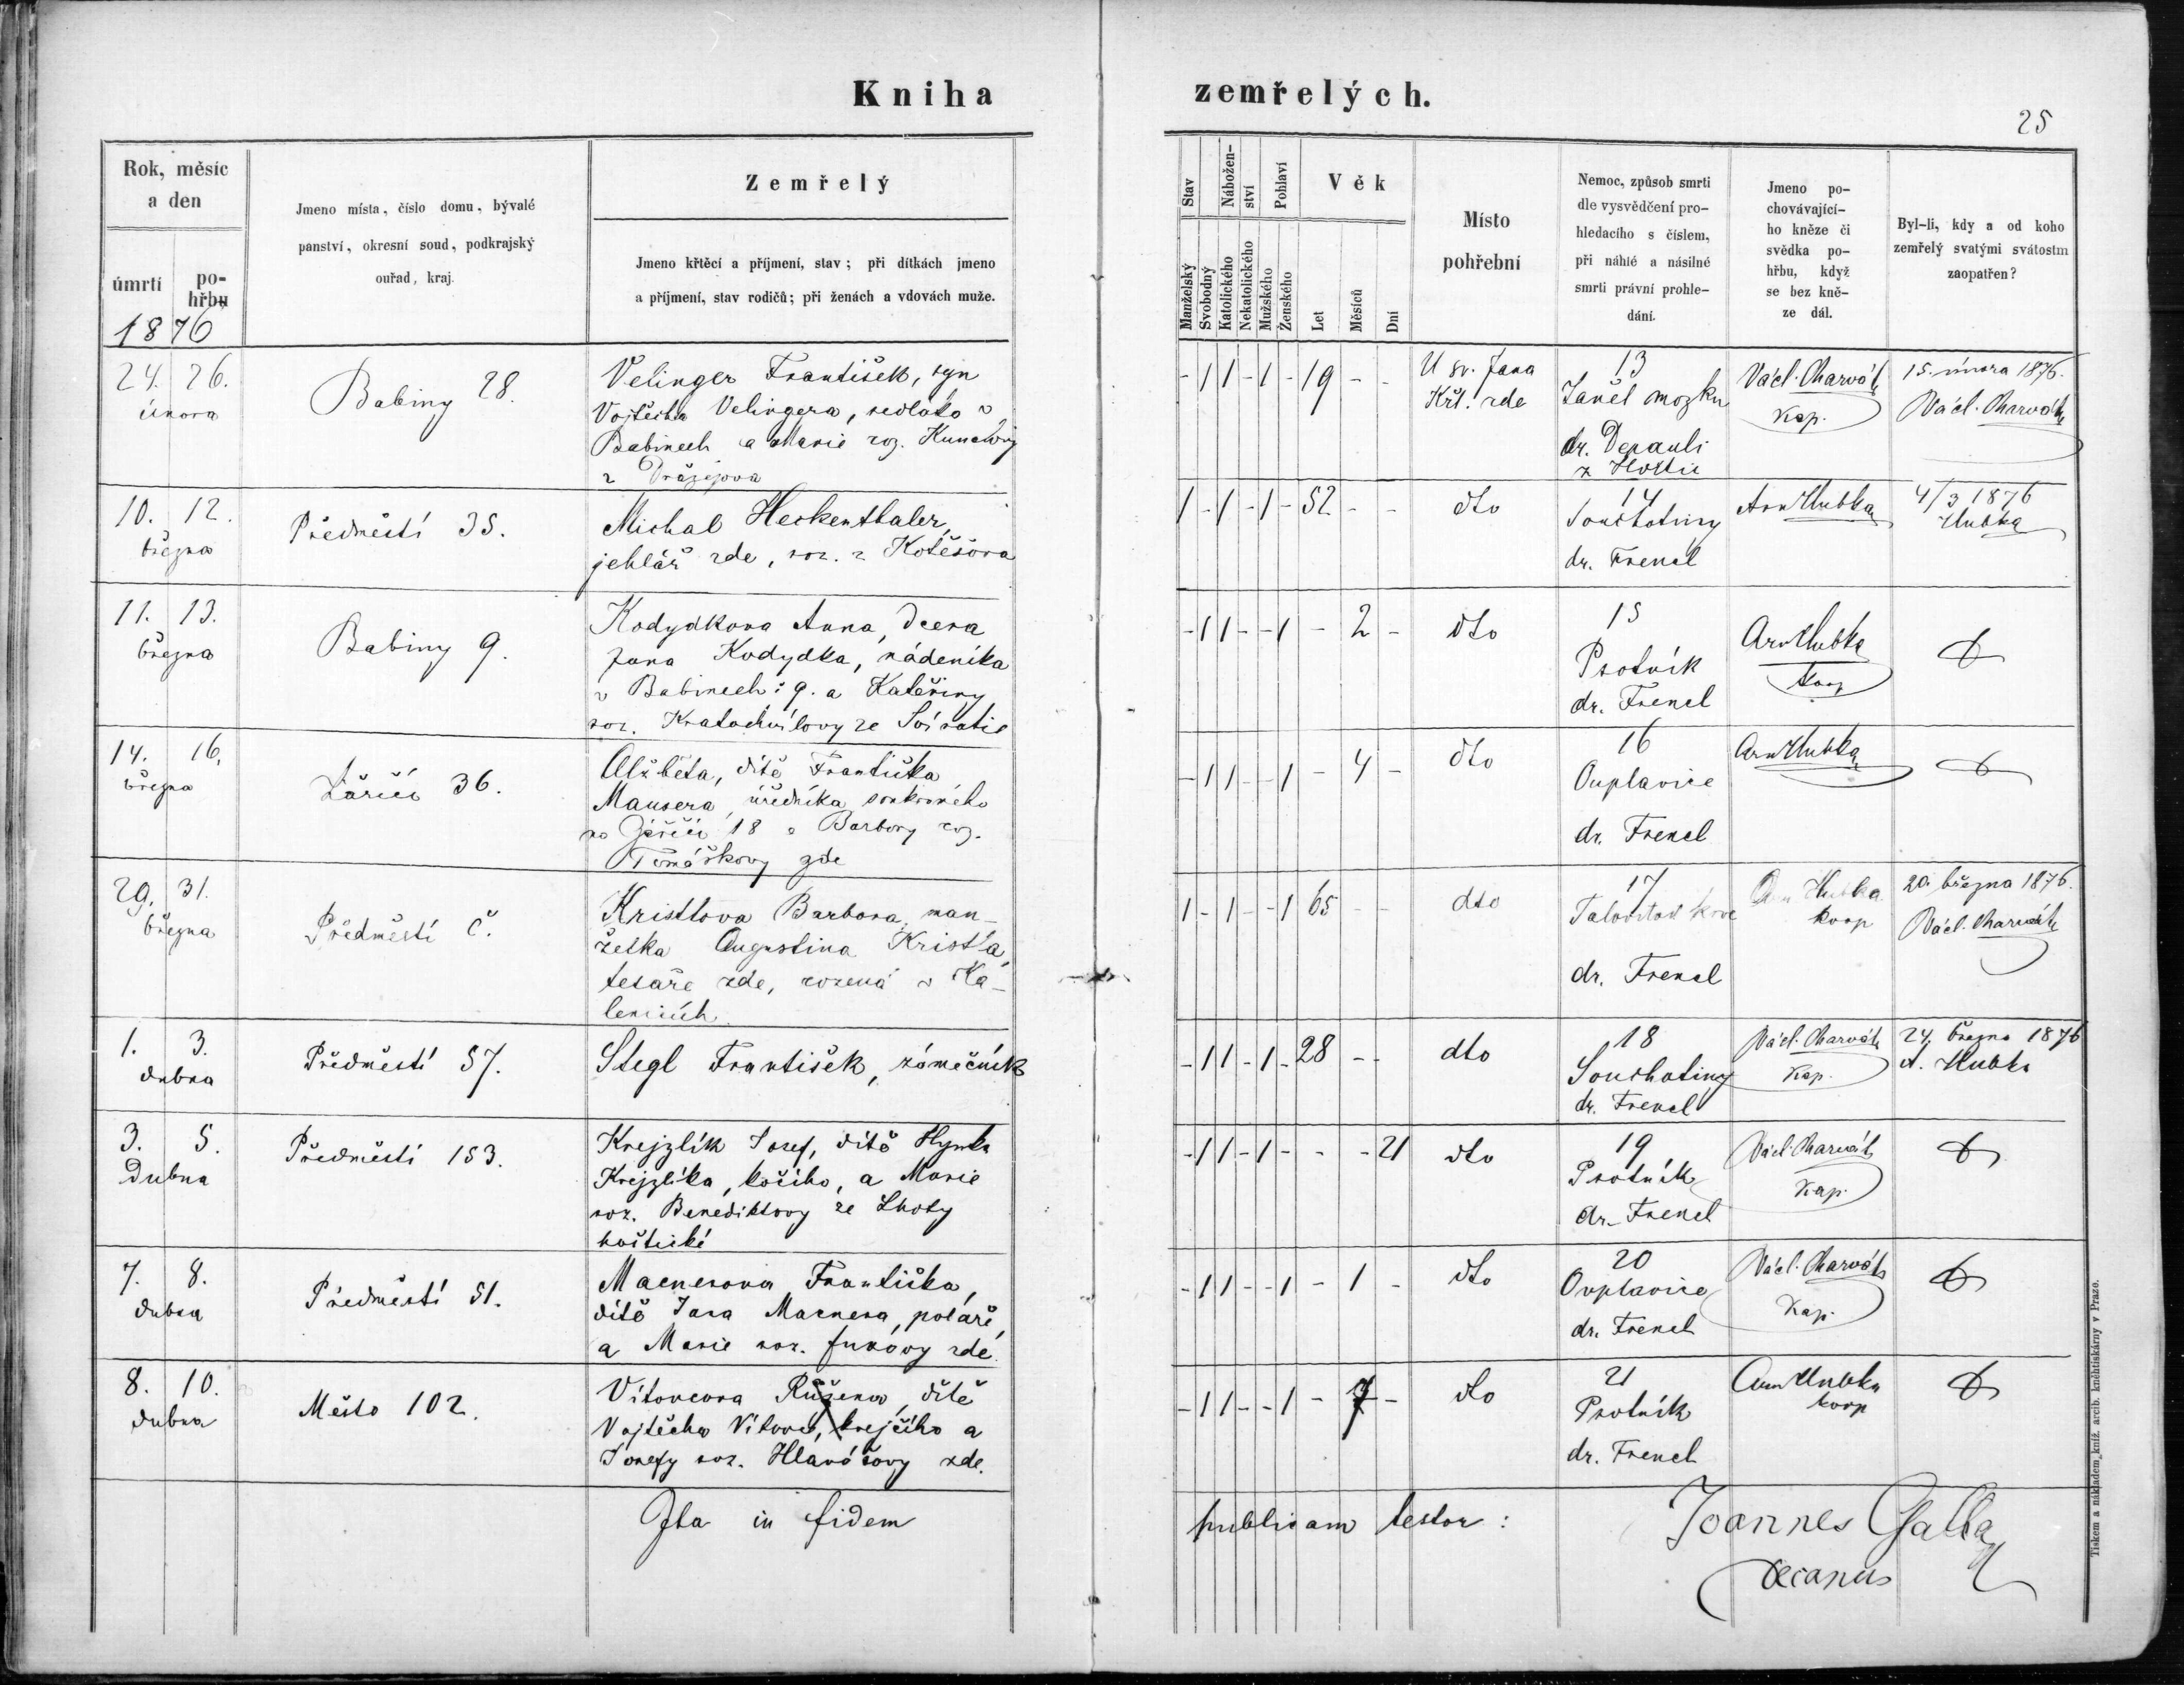 Kniha zemřelých.
25
Rok, měsíc
a den
úmrtí
po-
hřbu
1876
Jmeno místa, číslo domu, bývalé
panství, okresní soud, podkrajský
ouřad, kraj.
Zemřelý
Jmeno křtěcí a příjmení, stav; při dítkách jmeno
a příjmení, stav rodičů; při ženách a vdovách muže.
Stav
Nábožen-
ství
Pohlaví
Věk
Manželský
Svobodný
Katolického
Nekatolického
Mužského
Ženského
Let
Měsíců
Dní
Místo
pohřební
Nemoc, způsob smrti
dle vysvědčení pro-
hledacího s číslem,
při náhlé a násilné
smrti právní prohle-
dání.
Jmeno po-
chovávající-
ho kněze či
svědka po-
hřbu, když
se bez kně-
ze dál.
Byl-li, kdy a od koho
zemřelý svatými svátostm
zaopatřen?
24. 26.
února
Babiny 28.
Velinger František, syn
Vojtěcha Velingera, sedláka v
Babinech a Marie roz.
z Dražejova
- 1 1 - 1 - 19 - -
U sv. Jana
Křt. zde
13
Zánět mozku
dr. Depauli
z Horažďovic
Václ. Charvát
kap.
15. února 1876.
Václ. Charvát
10. 12.
března
Předměstí 35.
Michal Heckenthaler,
jehlář zde, roz. z
1 - 1 - 1 - 52 - -
dto
14
Souchotiny
dr. Frencl
Arn Hubka
4/3 1876
Hubka
11. 13.
března
Babiny 9.
Kodydkova Anna, dcera
Jana Kodydka, nádeníka
v Babinech č 9. a Kateřiny
roz. Kratochvílovy ze
- 1 1 - - 1 - 2 -
dto
15
Psotník
dr. Frencl
Arn Hubka
koop
14. 16.
března
36.
Alžběta, dítě Františka
Mausera, úředníka soukromého
na 18 a Barbory roz.
Tomáškovy zde
- 1 1 - - 1 - 4 -
dto
16
Ouplavice
dr. Frencl
Arn Hubka
29. 31.
března
Předměstí č.
Kristlova Barbora, man-
želka Augustina Kristla,
tesaře zde, rozená v Ka-
lenicích.
1 - 1 - - 1 65 - -
dto
17
dr. Frencl
Arn Hubka
koop
20. března 1876.
Václ. Charvát
1. 3.
dubna
Předměstí 57.
Stegl František, zámečník
- 1 1 - 1 - 28 - -
dto
18
Souchotiny
dr. Frencl
Václ. Charvát
kap.
24. března 1876
A. Hubka
3. 5.
Dubna
Předměstí 153.
Krejzlík Josef, dítě Hynka
Krejzlíka, kočího, a Marie
roz. Benediktovy ze Lhoty
hoštické
- 1 1 - 1 - - - 21
dto
19
Psotník
dr. Frencl
Václ. Charvát
kap.
7. 8.
dubna
Předměstí 51.
Macnerova Františka,
dítě Jana Macnera,
a Marie roz. zde.
- 1 1 - - 1 - 1 -
dto
20
Ouplavice
dr. Frencl
Václ. Charvát
kap.
8. 10.
dubna
Město 102.
Vítovcova Růžena, dítě
Vojtěcha Vítovce, krejčího a
Josefy roz. zde.
- 1 1 - - 1 - 7 -
dto
21
Psotník
dr. Frencl
Arn Hubka
koop
Ita in fidem publicam testor:
Joannes Galba
decanus
Tiskem a nákladem kníž. arcib. kněhtiskárny v Praze.